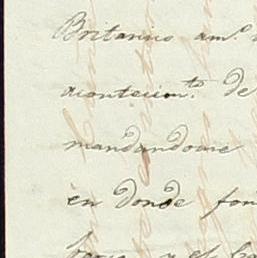 Britanico am.º
acontecim.to de
mandandome
en donde fon